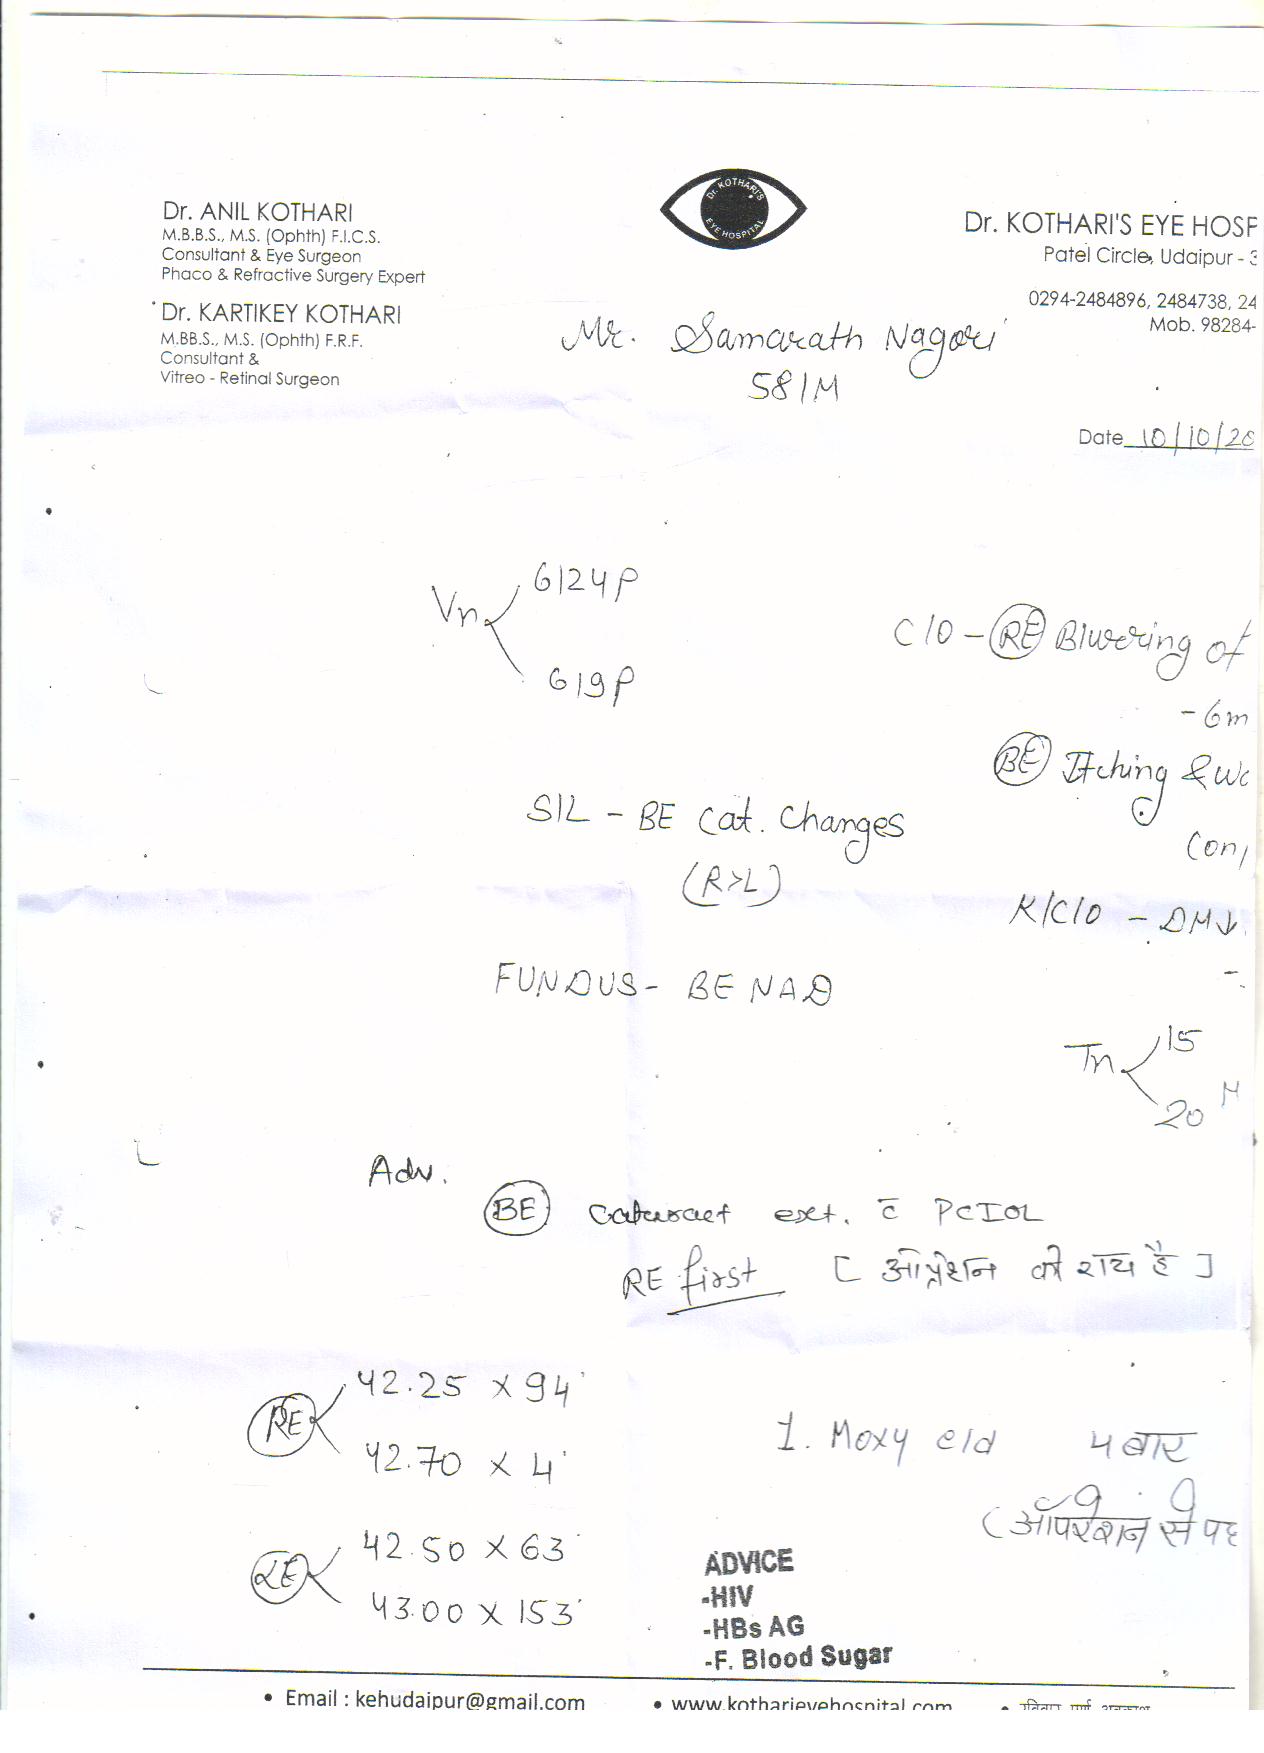 Dr. ANIL KOTHARI
M.B.B.S., M.S. (Ophth) F.I.C.S.
Consultant & Eye Surgeon
Phaco & Refractive Surgery Expert
Dr. KARTIKEY KOTHARI
M.BB.S., M.S. (Ophth) F.R.F.
Consultant &
Vitreo - Retinal Surgeon
Dr. KOTHARI'S
EYE HOSPITAL
Dr. KOTHARI'S EYE HOSP
Patel Circle, Udaipur - 3
0294-2484896, 2484738, 24
Mob. 98284-
Mr. Samarath Nagori
58/M
Date 10/10/20
Vn 6/24P
6/9P
C/O - RE Blurring of
- 6m
BE Itching & wa
S/L - BE Cat. Changes
(R>L)
K/C/O - DM↓
FUNDUS - BE NAD
Tn 15
20
Adv.
BE Cataract ext. c̄ PCIOL
RE first [ ऑप्रेशन की राय है ]
RE 42.25 x 94°
42.70 x 4°
LE 42.50 x 63°
43.00 x 153°
1. Moxy e/d 4 बार
(ऑपरेशन से पह
ADVICE
-HIV
-HBs AG
-F. Blood Sugar
• Email : kehudaipur@gmail.com • www.kotharieyehospital.com